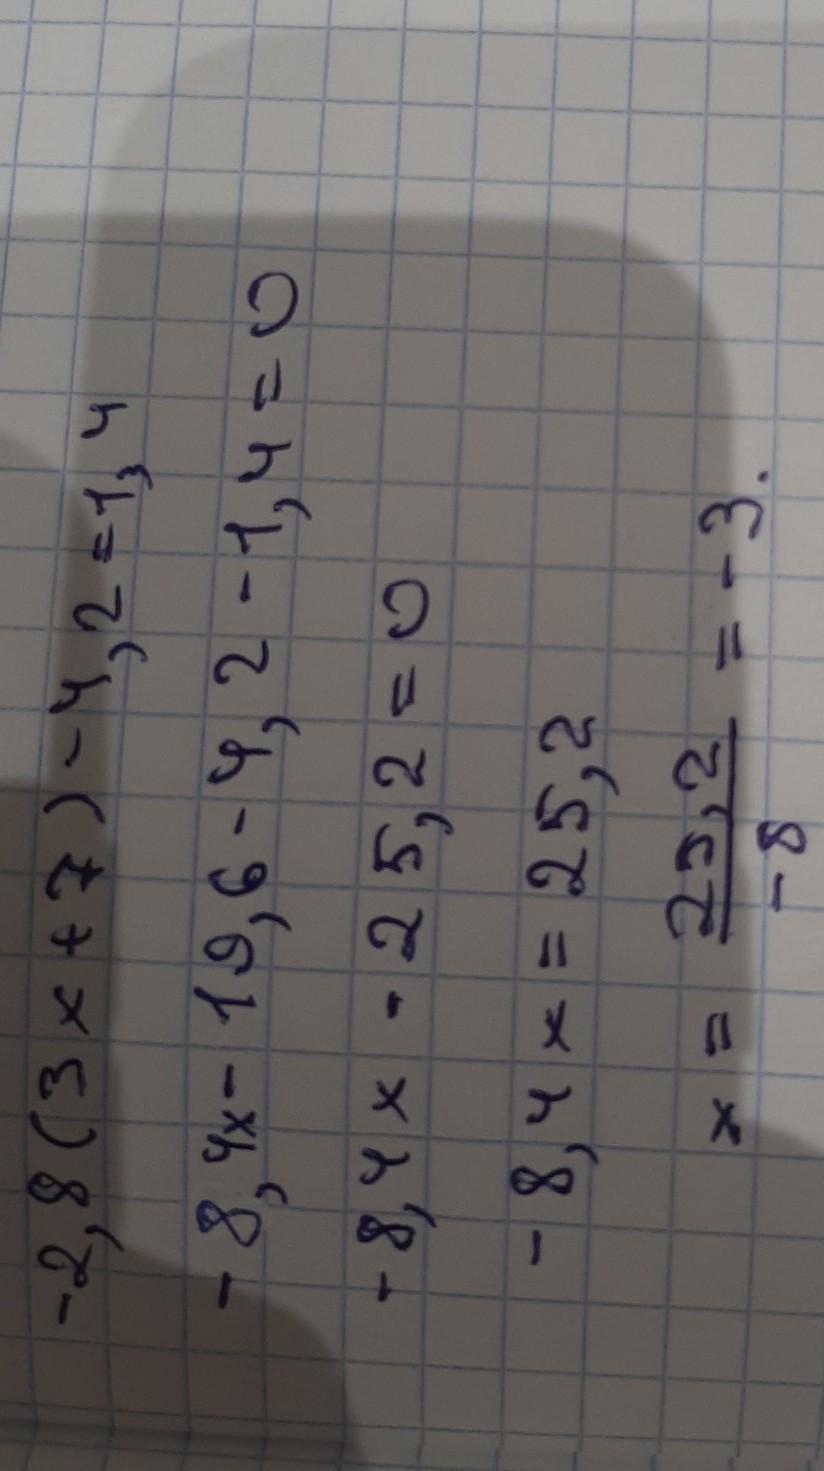 -2,8(3x+7)-4,2=1,4
-8,4x-19,6-4,2-1,4=0
-8,4x-25,2=0
-8,4x=25,2
x = 25,2/-8 = -3.